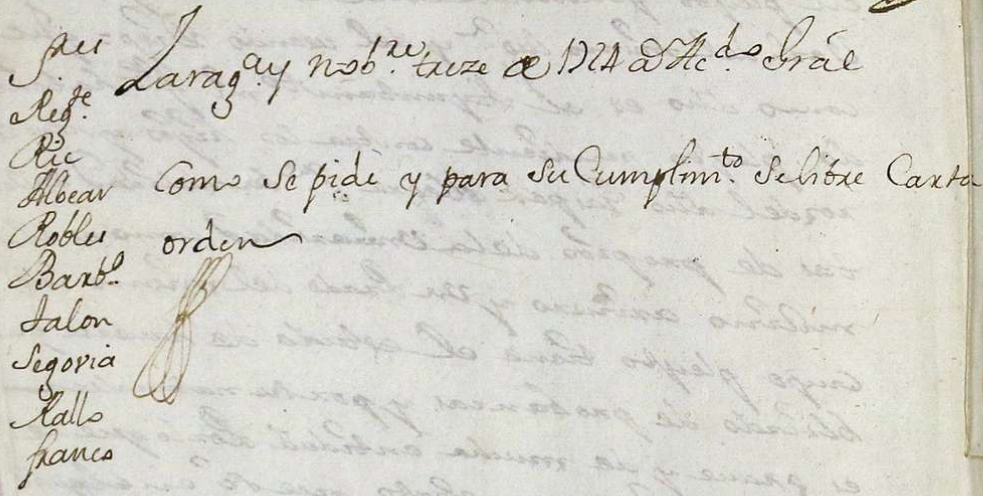 S.res
Reg.te
Ric
Albear
Robles
Barb.l
Jalon
Segovia
Rallo
franco
Zarag.a y nob.re treze de 1724 a Ac.do Gràl
Como se pide y para su Cumplim.to se libre Carta
orden